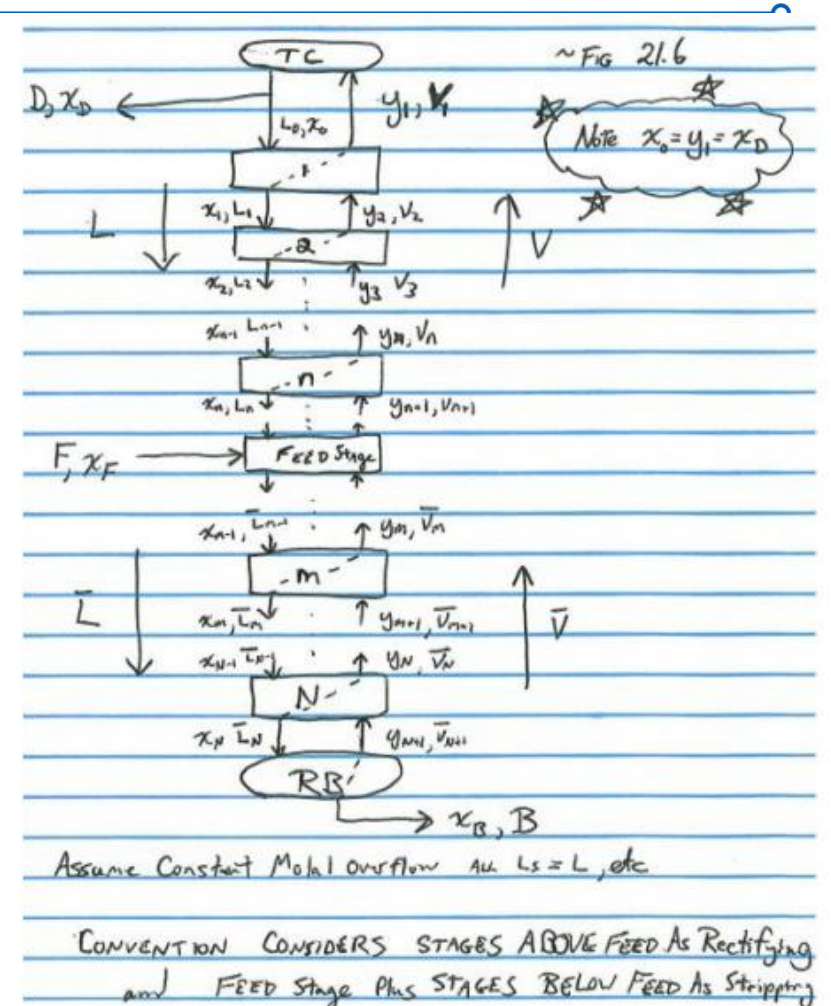 TC
~ FIG 21.6
D, x_D
y_1, V_1
L_0, x_0
NOTE x_0 = y_1 = x_D
1
x_1, L_1
y_2, V_2
L
V
2
x_2, L_2
y_3 V_3
x_{n-1} L_{n-1}
y_n, V_n
n
x_n, L_n
y_{n+1}, V_{n+1}
F, x_F
FEED Stage
x_{n-1}, L̄_{n-1}
y_m, V̄_m
m
L̄
V̄
x_m, L̄_m
y_{m+1}, V̄_{m+1}
x_{N-1} L̄_{N-1}
y_N, V̄_N
N
x_N L̄_N
y_{N+1}, V̄_{N+1}
RB
x_B, B
Assume Constant Molal Overflow ALL Ls = L, etc
CONVENTION CONSIDERS STAGES ABOVE FEED As Rectifying
and FEED Stage Plus STAGES BELOW FEED As Stripping